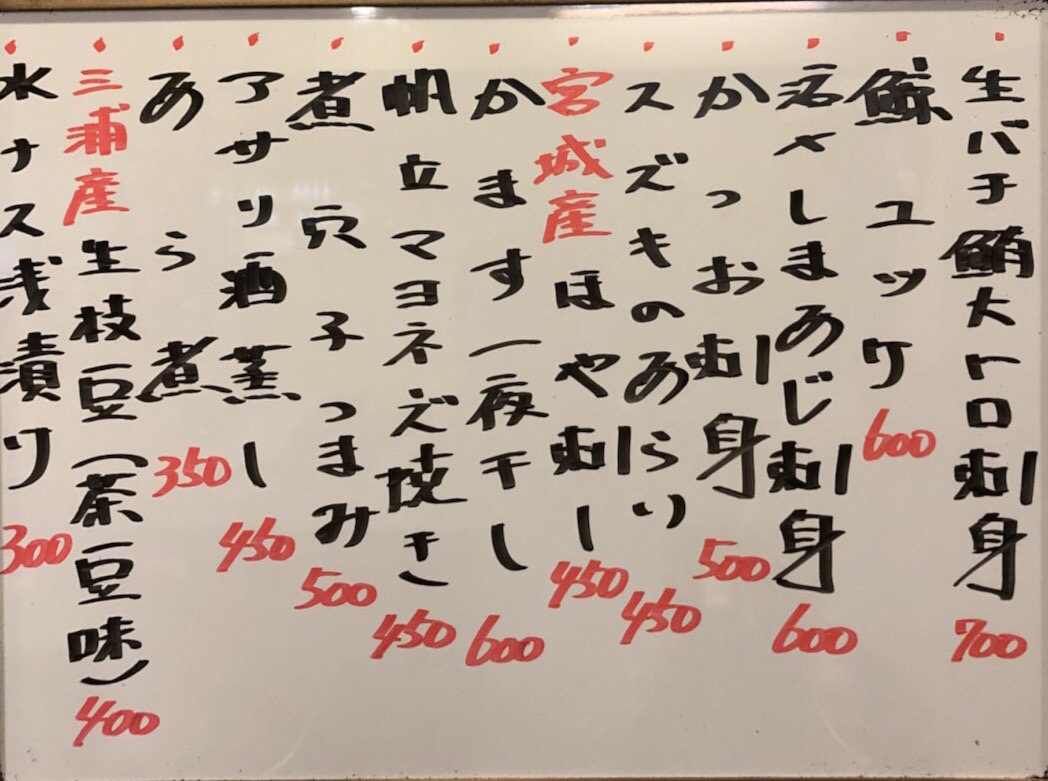 生バチ鮪大トロ刺身 700
鯨ユッケ 600
活〆しまあじ刺身 600
かつお刺身 500
スズキのあらい 450
宮城産ほや刺し 450
かます一夜干し 600
帆立マヨネーズ焼き 450
煮穴子つまみ 500
アサリ酒蒸し 450
あら煮 350
三浦産生枝豆(茶豆味) 400
水ナス浅漬り 300